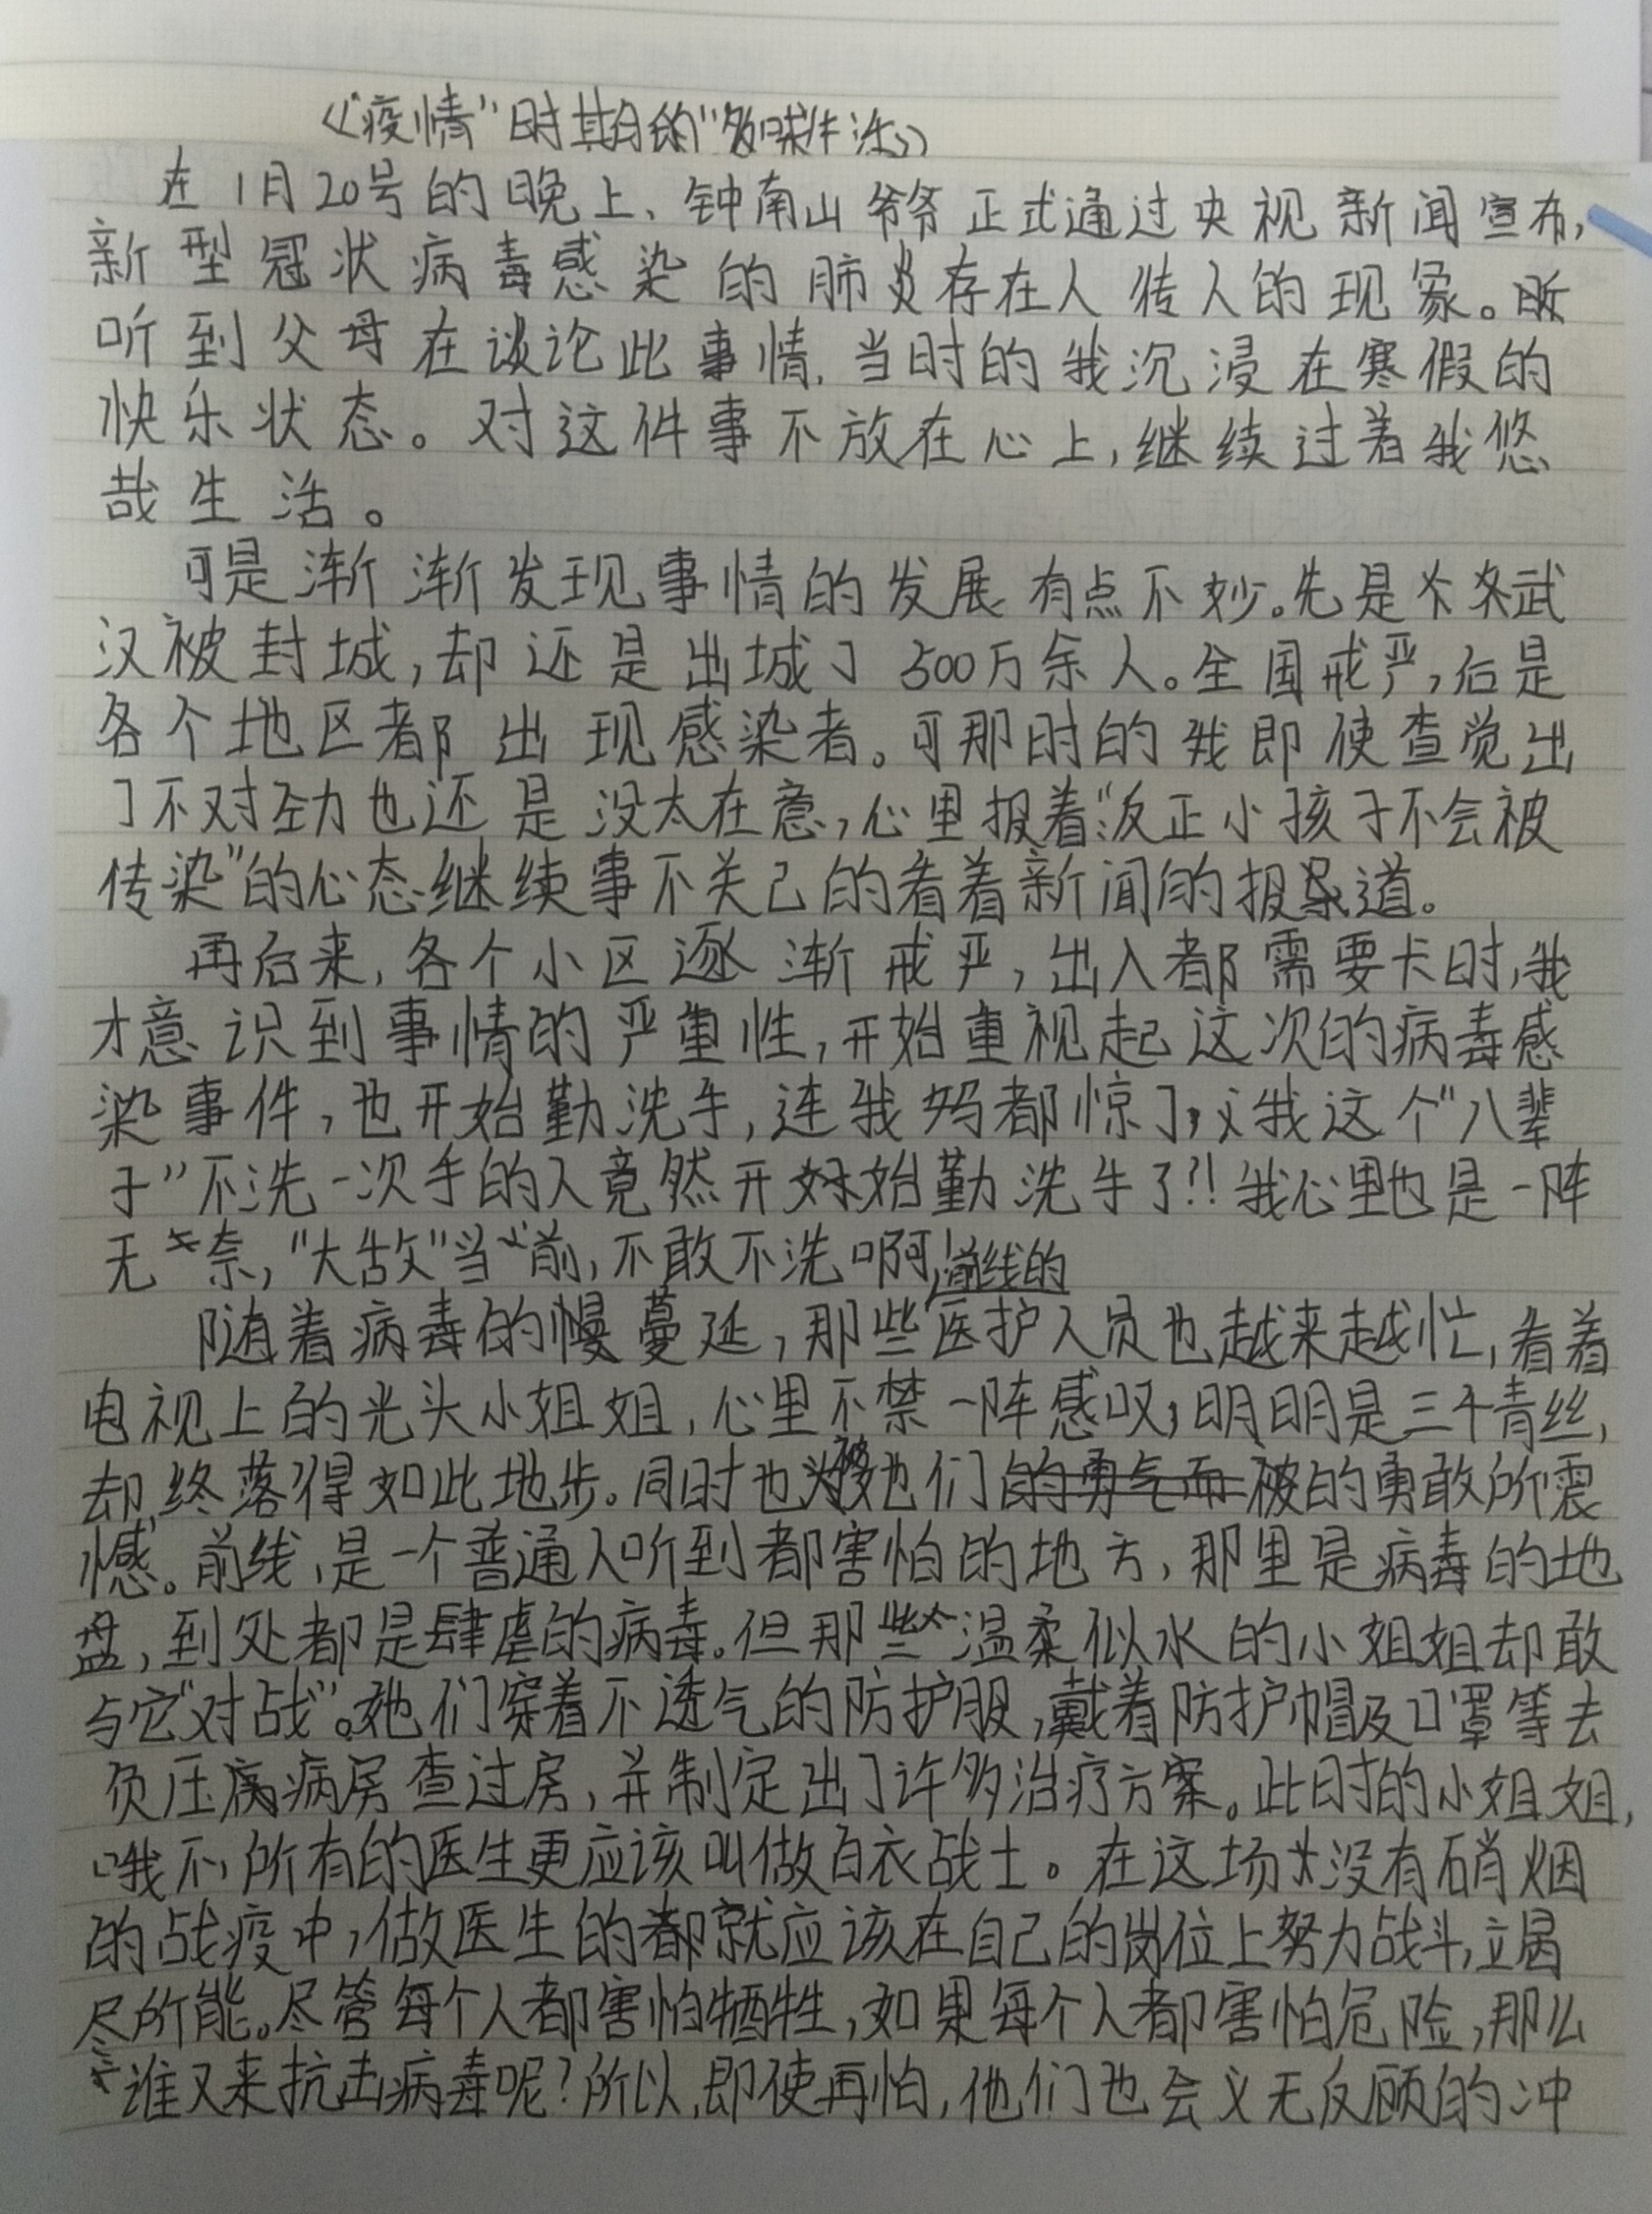 《“疫情”时期的“多味生活》
在1月20号的晚上、钟南山爷爷正式通过央视新闻宣布,
新型冠状病毒感染的肺炎存在人传人的现象。
听到父母在谈论此事情,当时的我沉浸在寒假的
快乐状态。对这件事不放在心上,继续过着我悠
哉生活。
可是渐渐发现事情的发展有点不妙。先是武
汉被封城,却还是出城了500万余人。全国戒严,后是
各个地区都出现感染者。可那时的我即使查觉出
了不对劲也还是没太在意,心里报着“反正小孩子不会被
传染”的心态.继续事不关己的看着新闻的报道。
再后来,各个小区逐渐戒严,出入都需要卡时,我
才意识到事情的严重性,开始重视起这次的病毒感
染事件,也开始勤洗手,连我妈都惊了,我这个“八辈
子”不洗一次手的人竟然开始勤洗手了?!我心里也是一阵
无奈,“大敌”当前,不敢不洗啊!
前线的
随着病毒的蔓延,那些医护人员也越来越忙,看着
电视上的光头小姐姐,心里不禁一阵感叹,明明是三千青丝,
却终落得如此地步。同时也被她们的勇敢所震
憾。前线,是一个普通人听到都害怕的地方,那里是病毒的地
盘,到处都是肆虐的病毒。但那些温柔似水的小姐姐却敢
与它“对战”。她们穿着不透气的防护服,戴着防护帽及口罩等去
负压病房查过房,并制定出了许多治疗方案。此时的小姐姐,
哦不,所有的医生更应该叫做白衣战士。在这场没有硝烟
的战疫中,做医生的就应该在自己的岗位上努力战斗,竭
尽所能。尽管每个人都害怕牺牲,如果每个人都害怕危险,那么
谁又来抗击病毒呢?所以,即使再怕,他们也会义无反顾的冲